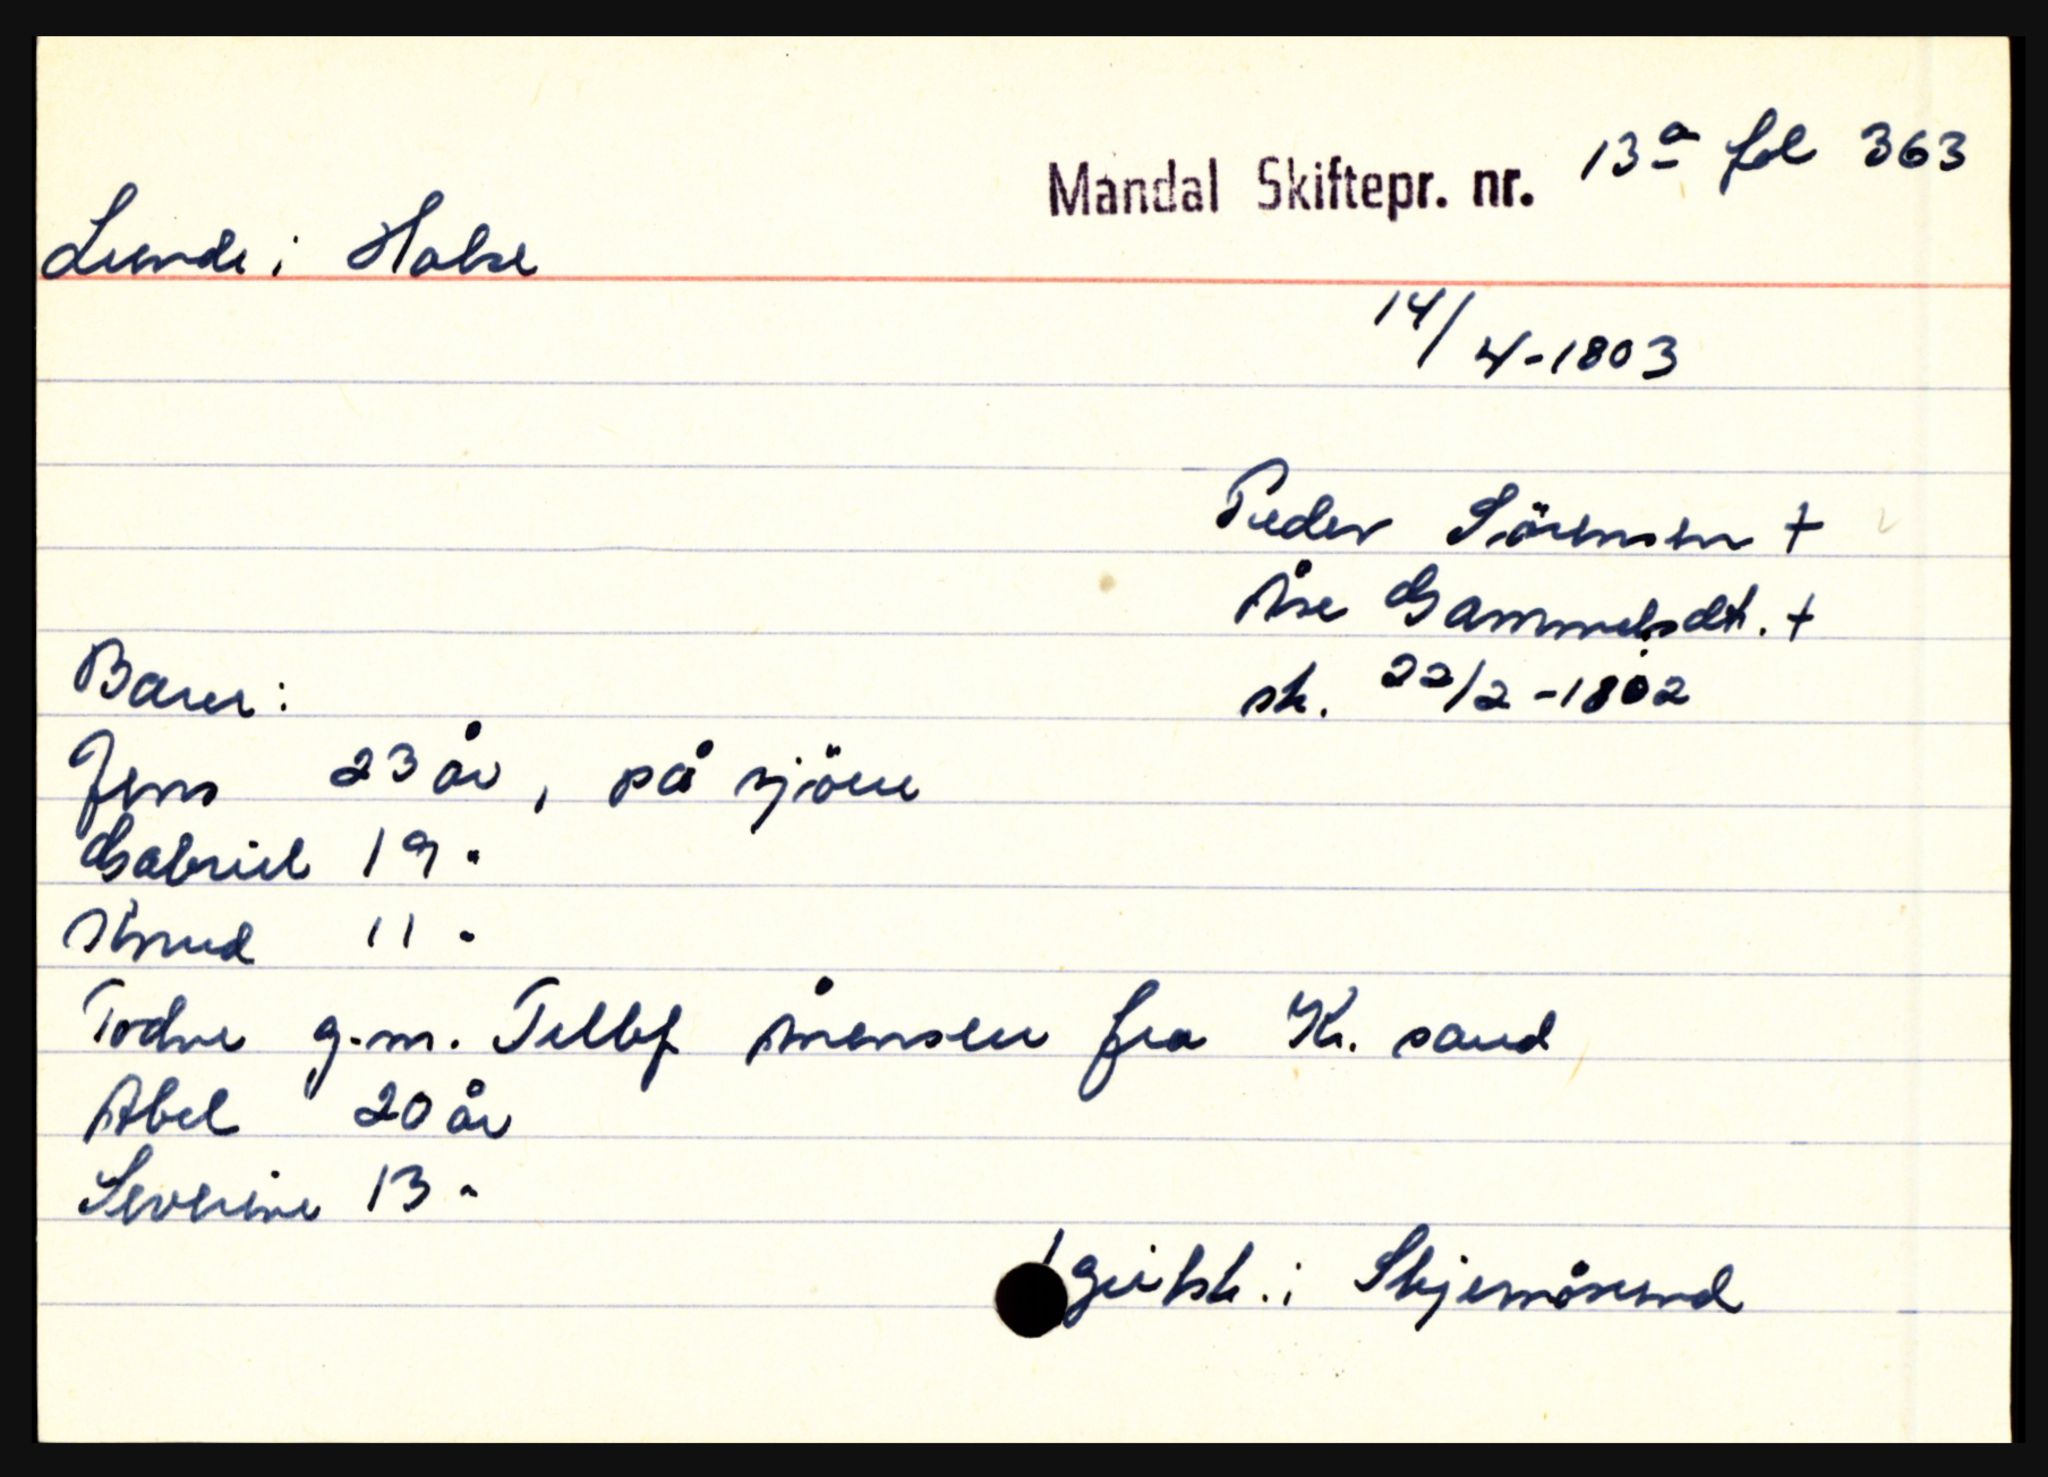 Mandal Skiftepr. nr. 13a fol 363
Lunde i Halse
14/4-1803
Peder Sörensen +
Åse Gammelsdt. +
sk. 22/2-1802
Barn:
Jens 23 år, på sjöen
Gabriel 19 "
Knud 11 "
Todne g.m. Tellef Ånensen fra Kr. sand
Abel 20 år
Severine 13 "
1 i Skjernösund